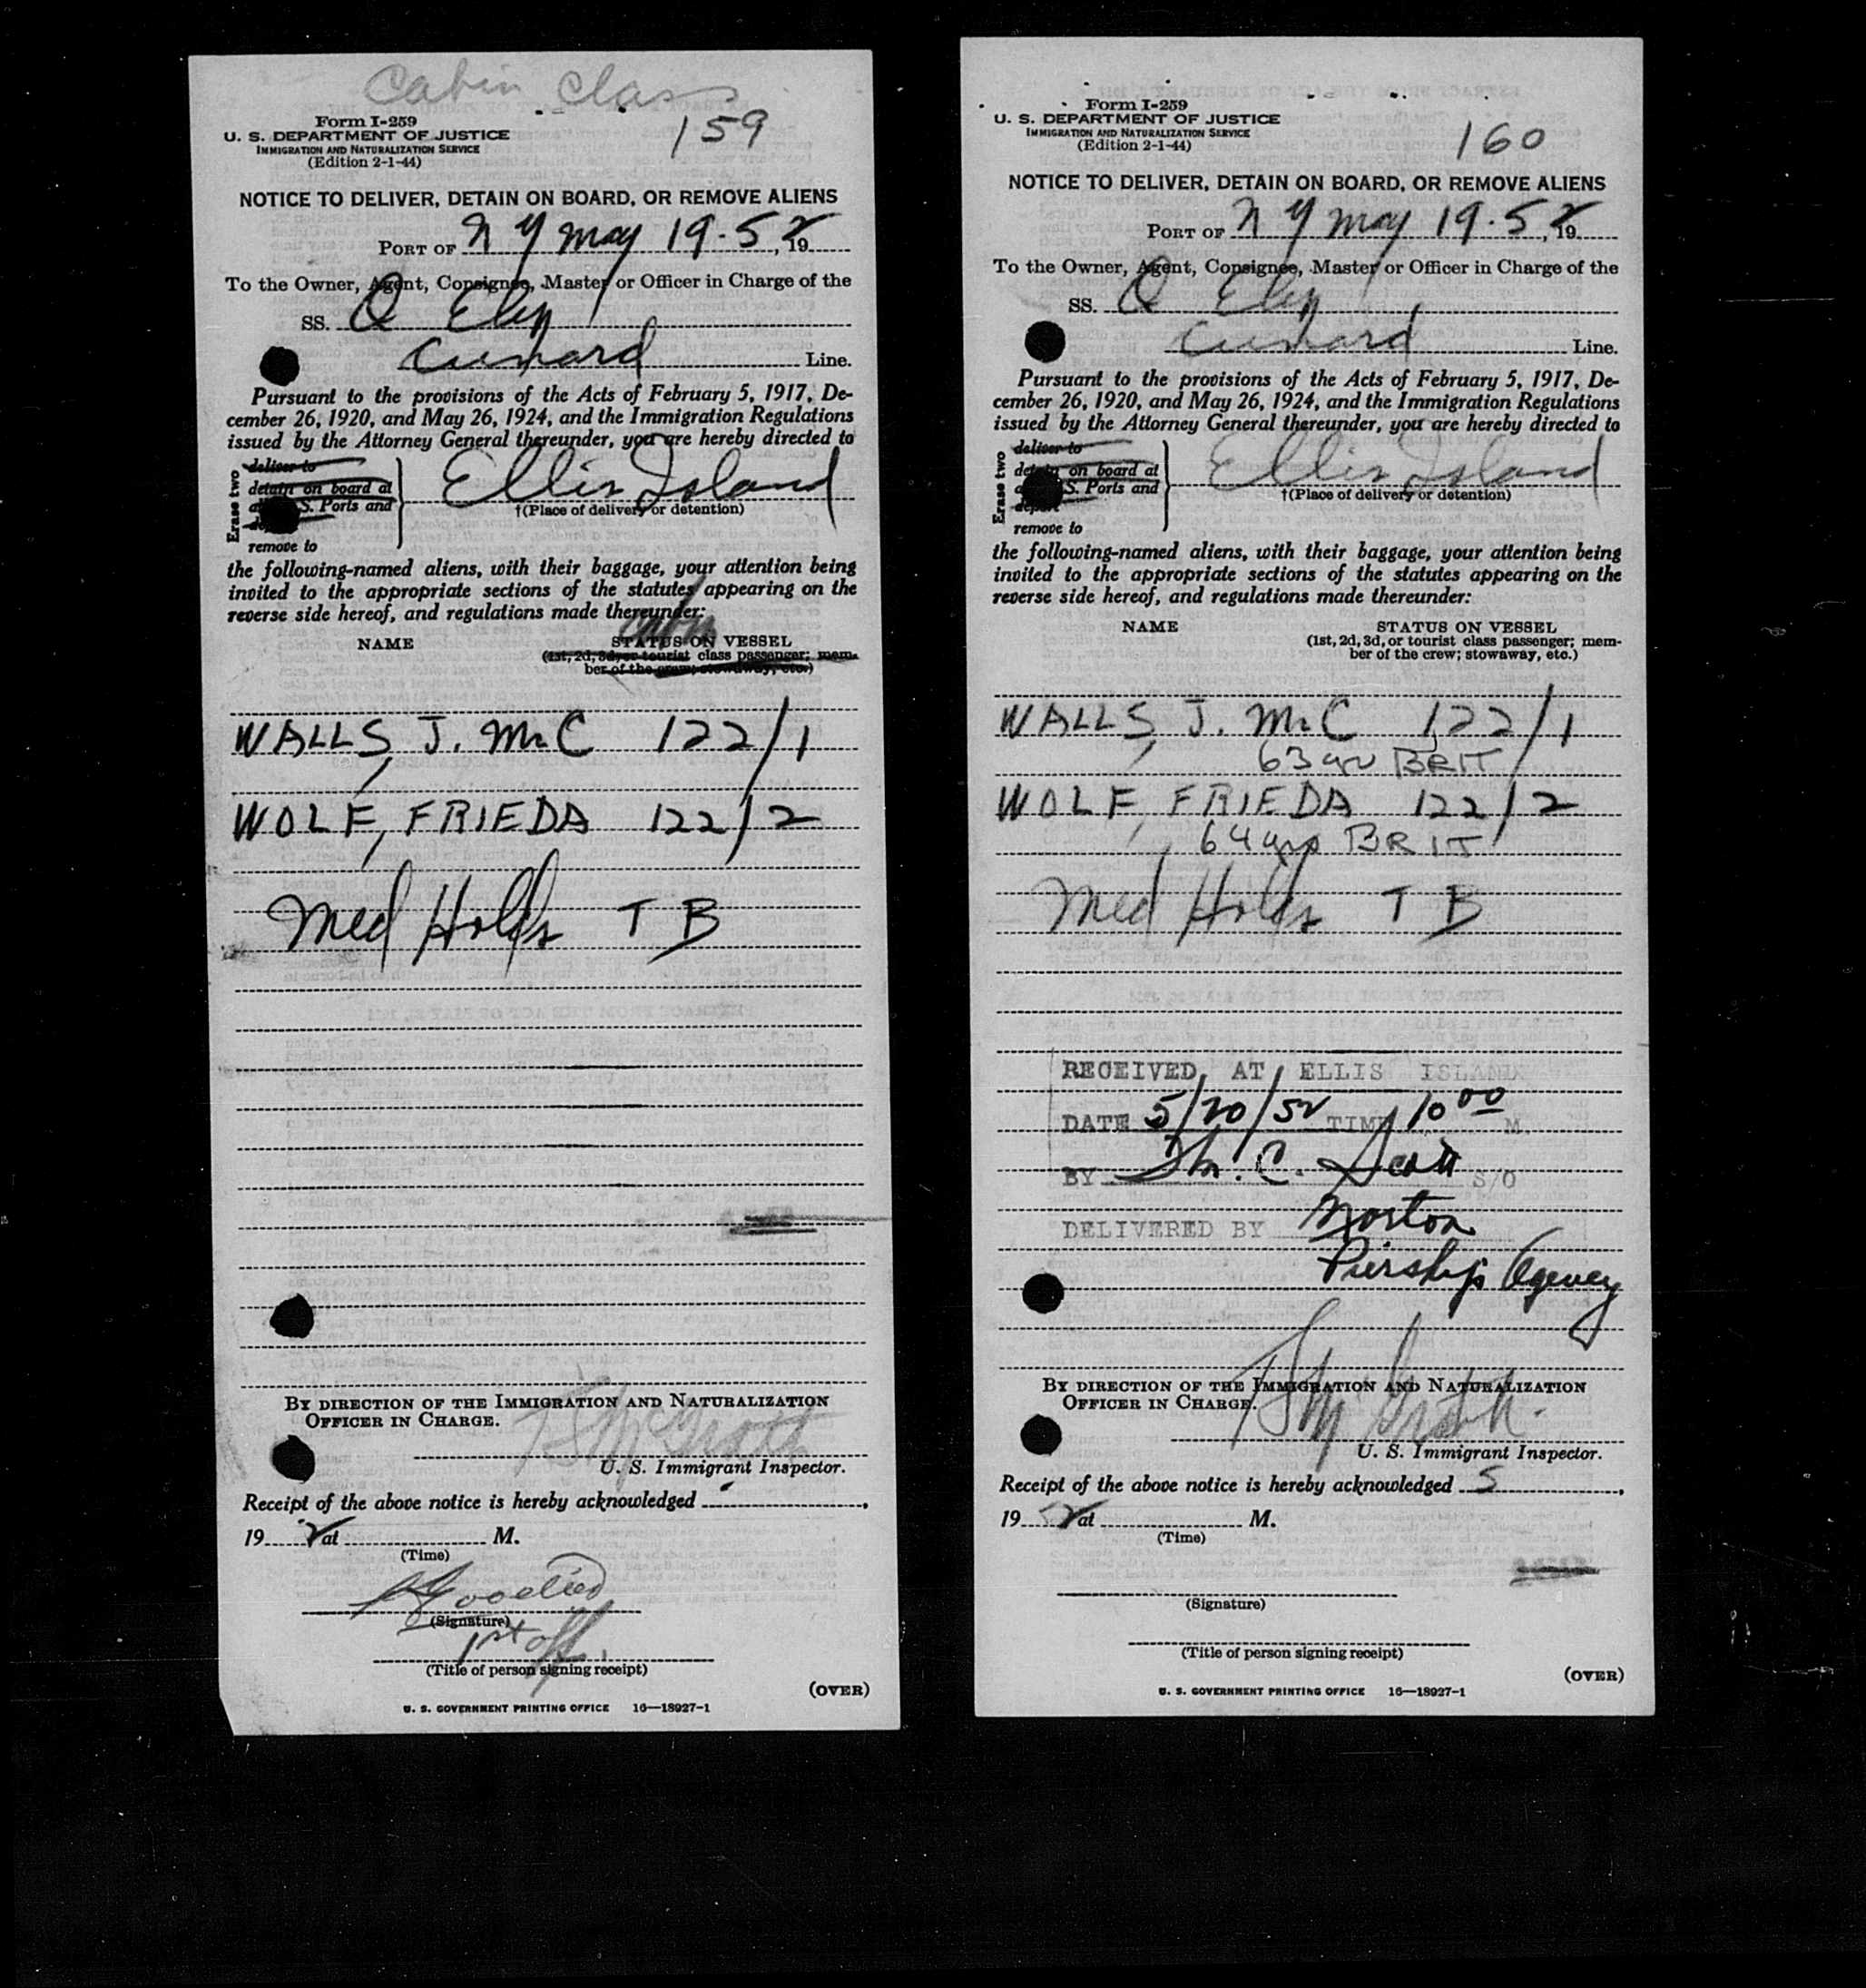 Cabin Class
159
Form I-259
U. S. DEPARTMENT OF JUSTICE
IMMIGRATION AND NATURALIZATION SERVICE
(Edition 2-1-44)
NOTICE TO DELIVER, DETAIN ON BOARD, OR REMOVE ALIENS
PORT OF N Y May 19·52, 19
To the Owner, Agent, Consignee, Master or Officer in Charge of the
SS. Q Eliz
Cunard Line.
Pursuant to the provisions of the Acts of February 5, 1917, De-
cember 26, 1920, and May 26, 1924, and the Immigration Regulations
issued by the Attorney General thereunder, you are hereby directed to
Erase two
deliver to
detain on board at
S. Ports and
remove to
Ellis Island
†(Place of delivery or detention)
the following-named aliens, with their baggage, your attention being
invited to the appropriate sections of the statutes appearing on the
reverse side hereof, and regulations made thereunder:
NAME STATUS ON VESSEL
(1st, 2d, 3d, or tourist class passenger; mem-
ber of the crew; stowaway, etc.)
WALLS, J. McC 122/1
WOLF, FRIEDA 122/2
Med Holds T B
BY DIRECTION OF THE IMMIGRATION AND NATURALIZATION
OFFICER IN CHARGE.
U. S. Immigrant Inspector.
Receipt of the above notice is hereby acknowledged
19 2 at M.
(Time)
(Signature)
1st off.
(Title of person signing receipt)
(OVER)
U. S. GOVERNMENT PRINTING OFFICE 16—18927-1
160
Form I-259
U. S. DEPARTMENT OF JUSTICE
IMMIGRATION AND NATURALIZATION SERVICE
(Edition 2-1-44)
NOTICE TO DELIVER, DETAIN ON BOARD, OR REMOVE ALIENS
PORT OF N Y May 19·52, 19
To the Owner, Agent, Consignee, Master or Officer in Charge of the
SS. Q Eliz
Cunard Line.
Pursuant to the provisions of the Acts of February 5, 1917, De-
cember 26, 1920, and May 26, 1924, and the Immigration Regulations
issued by the Attorney General thereunder, you are hereby directed to
Erase two
deliver to
detain on board at
S. Ports and
depart
remove to
Ellis Island
†(Place of delivery or detention)
the following-named aliens, with their baggage, your attention being
invited to the appropriate sections of the statutes appearing on the
reverse side hereof, and regulations made thereunder:
NAME STATUS ON VESSEL
(1st, 2d, 3d, or tourist class passenger; mem-
ber of the crew; stowaway, etc.)
WALLS, J. McC 122/1
63 yrs BRIT
WOLF, FRIEDA 122/2
64 yrs BRIT
Med Holds T B
RECEIVED AT ELLIS ISLAND
DATE 5/20/52 TIME 10 00 M.
BY C. Scott S/O
DELIVERED BY Norton
Piership Agency
BY DIRECTION OF THE IMMIGRATION AND NATURALIZATION
OFFICER IN CHARGE.
U. S. Immigrant Inspector.
Receipt of the above notice is hereby acknowledged 5
19 52 at M.
(Time)
(Signature)
(Title of person signing receipt)
(OVER)
U. S. GOVERNMENT PRINTING OFFICE 16—18927-1